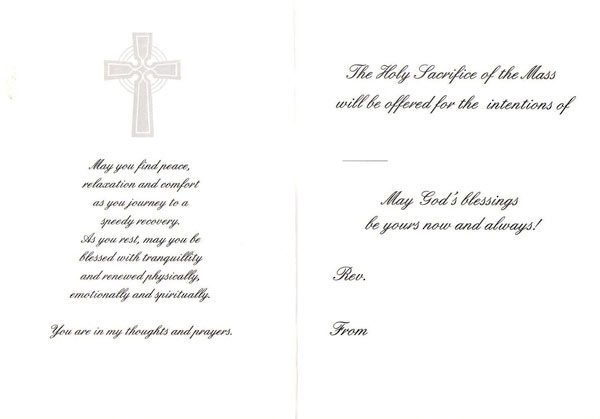 May you find peace,
relaxation and comfort
as you journey to a
speedy recovery.
As you rest, may you be
blessed with tranquillity
and renewed physically,
emotionally and spiritually.
You are in my thoughts and prayers.
The Holy Sacrifice of the Mass
will be offered for the intentions of
May God's blessings
be yours now and always!
Rev.
From